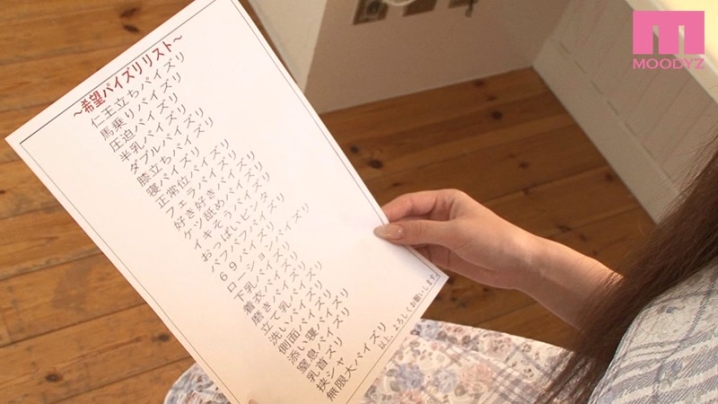 MOODYZ
～希望パイズリリスト～
仁王立ちパイズリ
馬乗りパイズリ
圧迫パイズリ
半乳パイズリ
ダブルパイズリ
膝立ちパイズリ
寝パイズリ
正常位パイズリ
フェラパイズリ
好き好きパイズリ
ケツ舐めパイズリ
イキそうパイズリ
おっぱいビンタ
パフパフパイズリ
69パイズリ
ローションパイズリ
下乳パイズリ
着衣パイズリ
磨きパイズリ
立て乳パイズリ
洗いパイズリ
側面パイズリ
添い寝パイズリ
窒息パイズリ
乳首パイズリ
挟シャ
無限大パイズリ
以上、よろしくお願いします